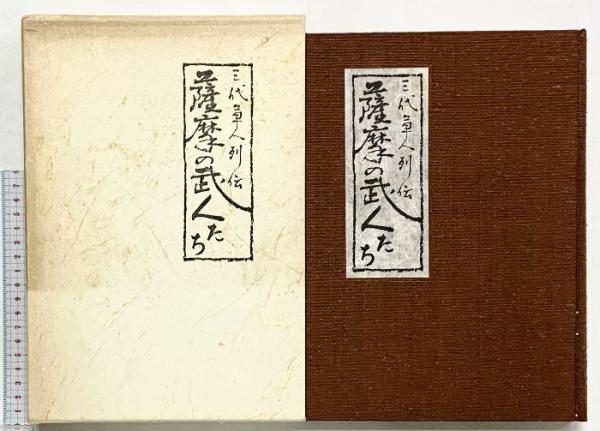 三代軍人列伝
薩摩の武人たち
三代軍人列伝
薩摩の武人たち